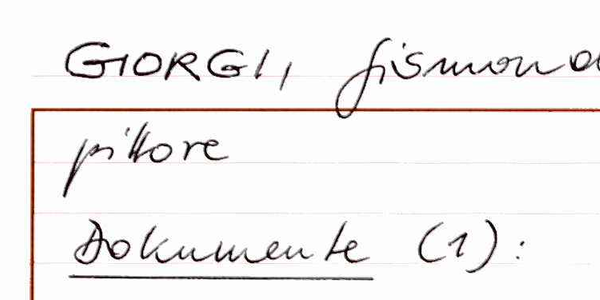 GIORGI, Gismon
pittore
Dokumente (1):